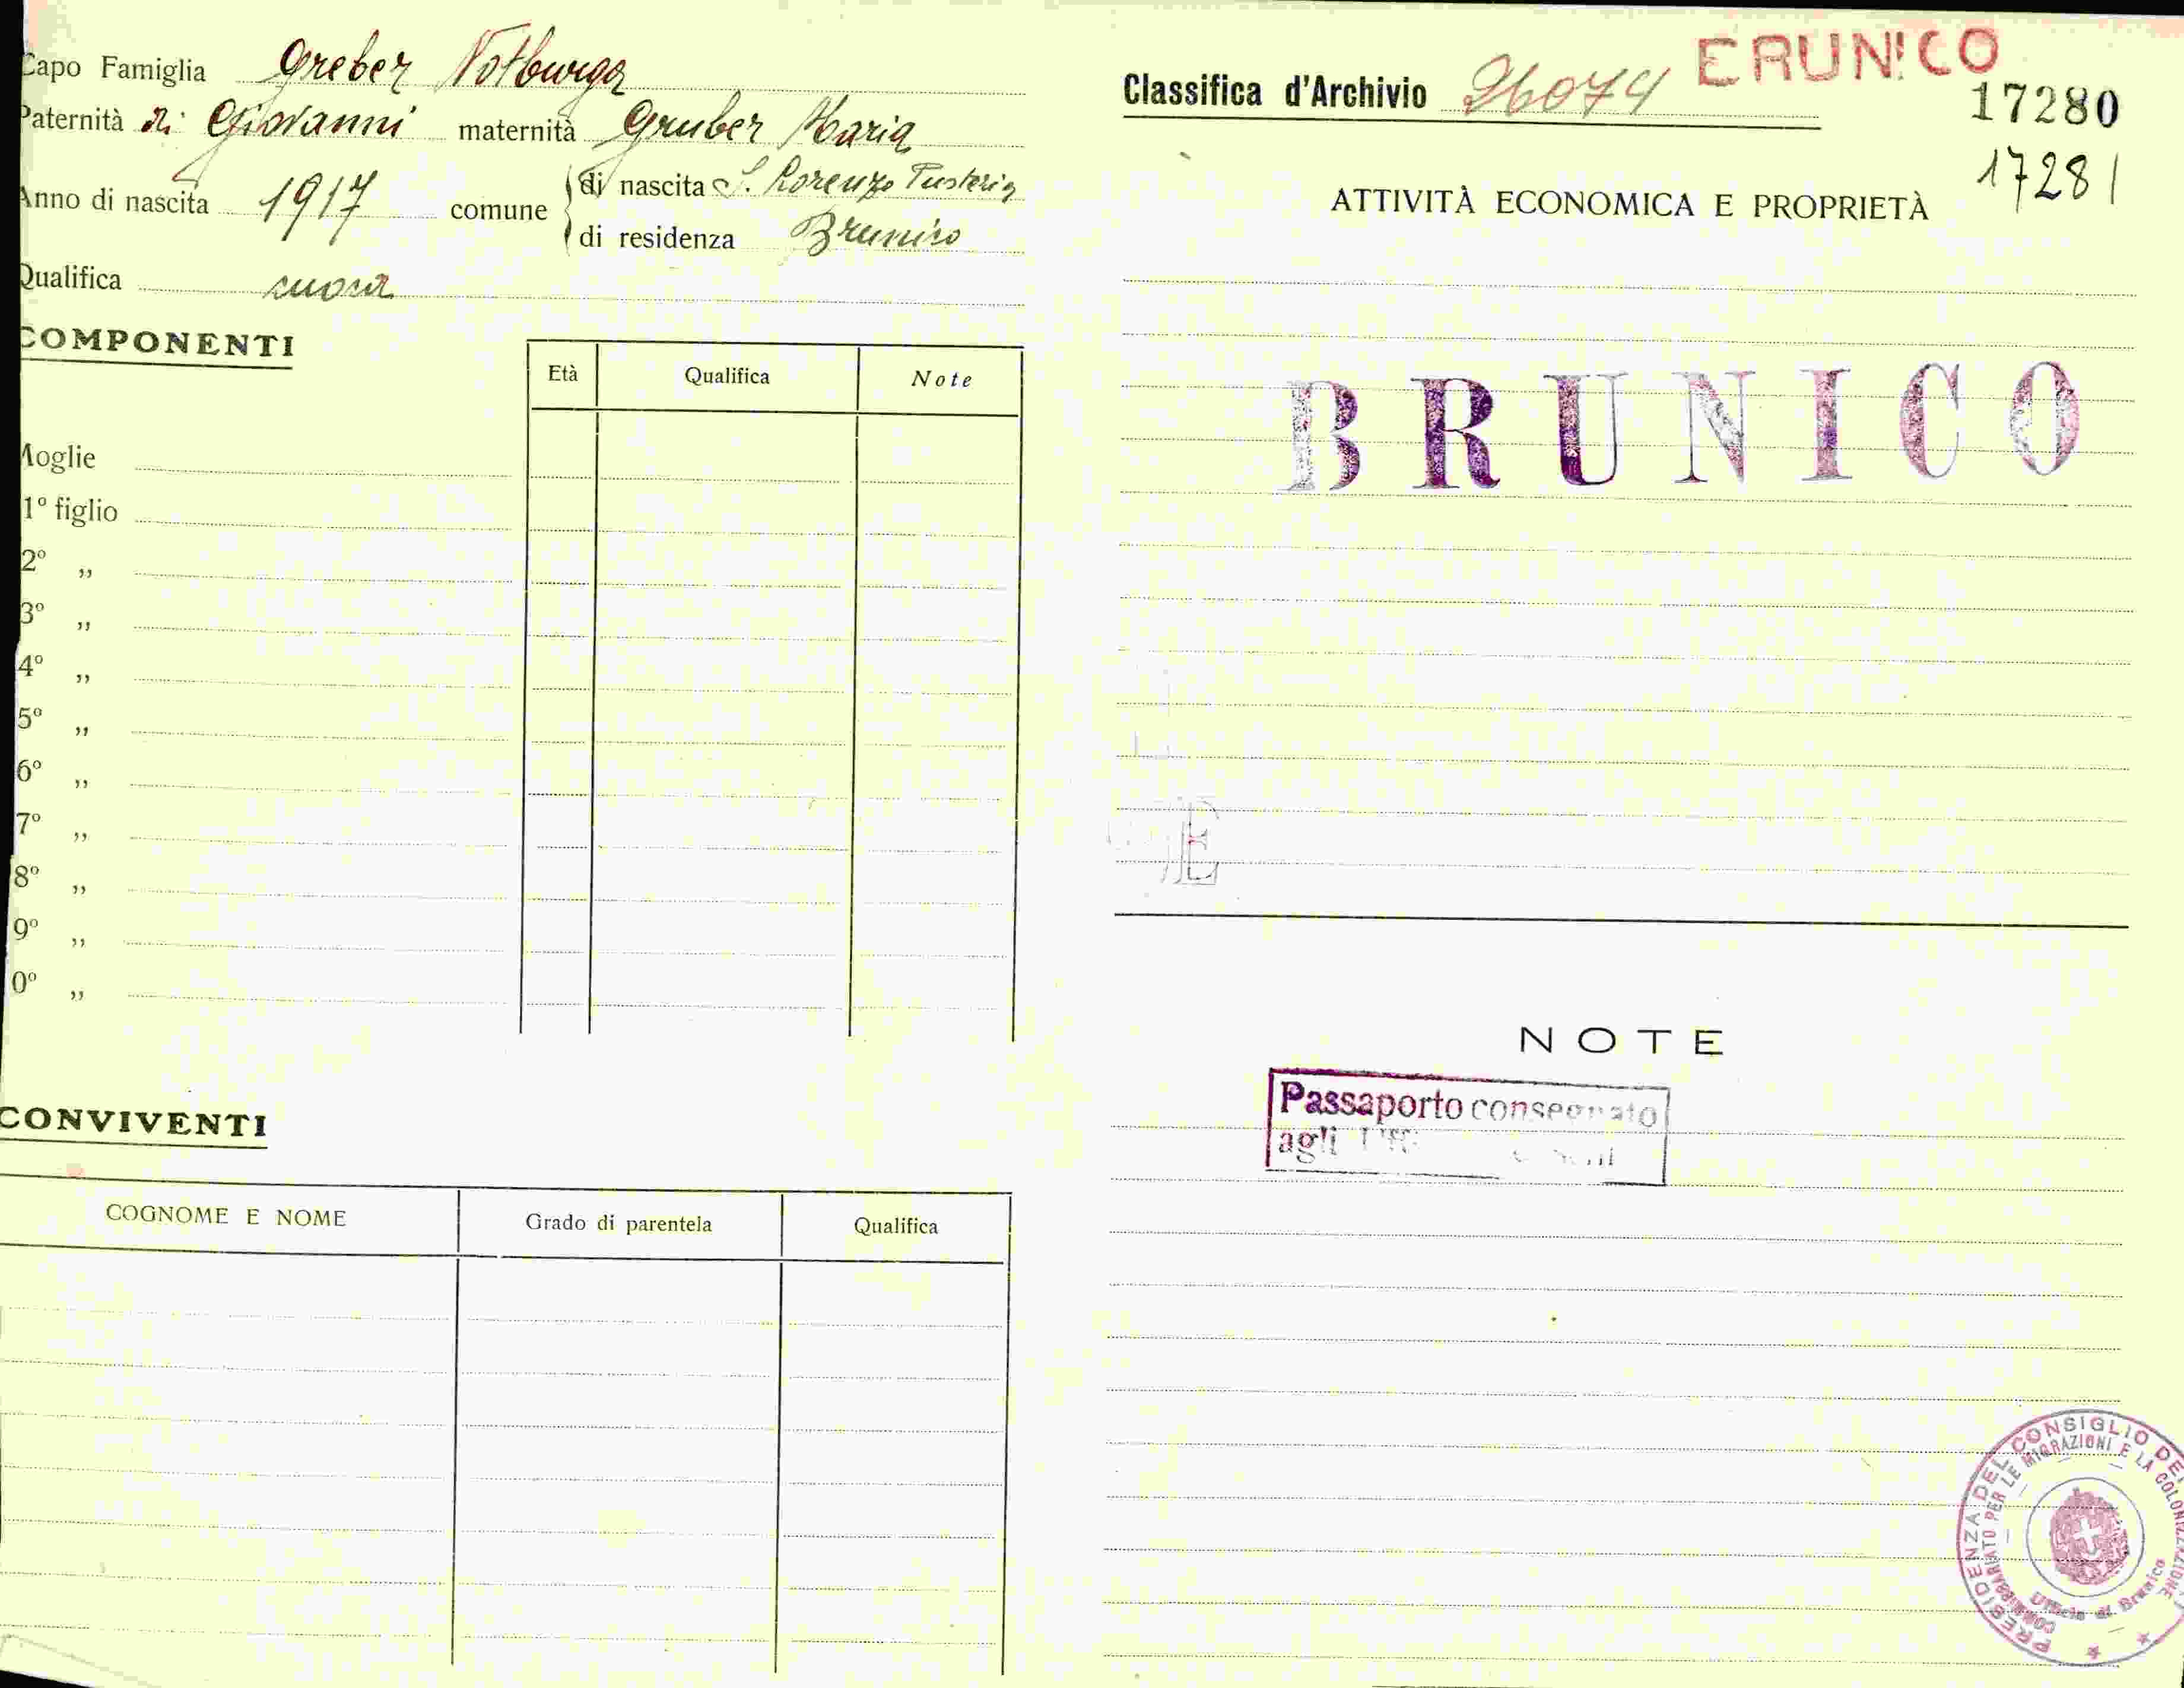 Capo Famiglia Greber Notburga
Paternità di Giovanni maternità Gruber Maria
Anno di nascita 1917 comune di nascita S. Lorenzo Pusteria
di residenza Brunico
Qualifica suora
COMPONENTI
Età Qualifica Note
Moglie
1º figlio
2º „
3º „
4º „
5º „
6º „
7º „
8º „
9º „
0º „
CONVIVENTI
COGNOME E NOME Grado di parentela Qualifica
Classifica d'Archivio 26074
BRUNICO
17280
17281
ATTIVITÀ ECONOMICA E PROPRIETÀ
BRUNICO
E
NOTE
Passaporto consegnato
agli
PRESIDENZA DEL CONSIGLIO DEI
COMMISSARIATO PER LE MIGRAZIONI E LA COLONIZZAZIONE
Ufficio di Brunico